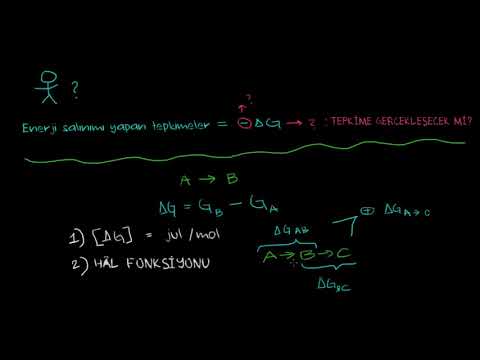 ?
?
Enerji salınımı yapan tepkimeler = ⊖ΔG → ? : TEPKİME GERÇEKLEŞECEK Mİ?
A → B
ΔG = G_B - G_A
1) [ΔG] = jul/mol
2) HÂL FONKSİYONU
ΔG_AB
⊕ ΔG_A→C
A → B → C
ΔG_BC